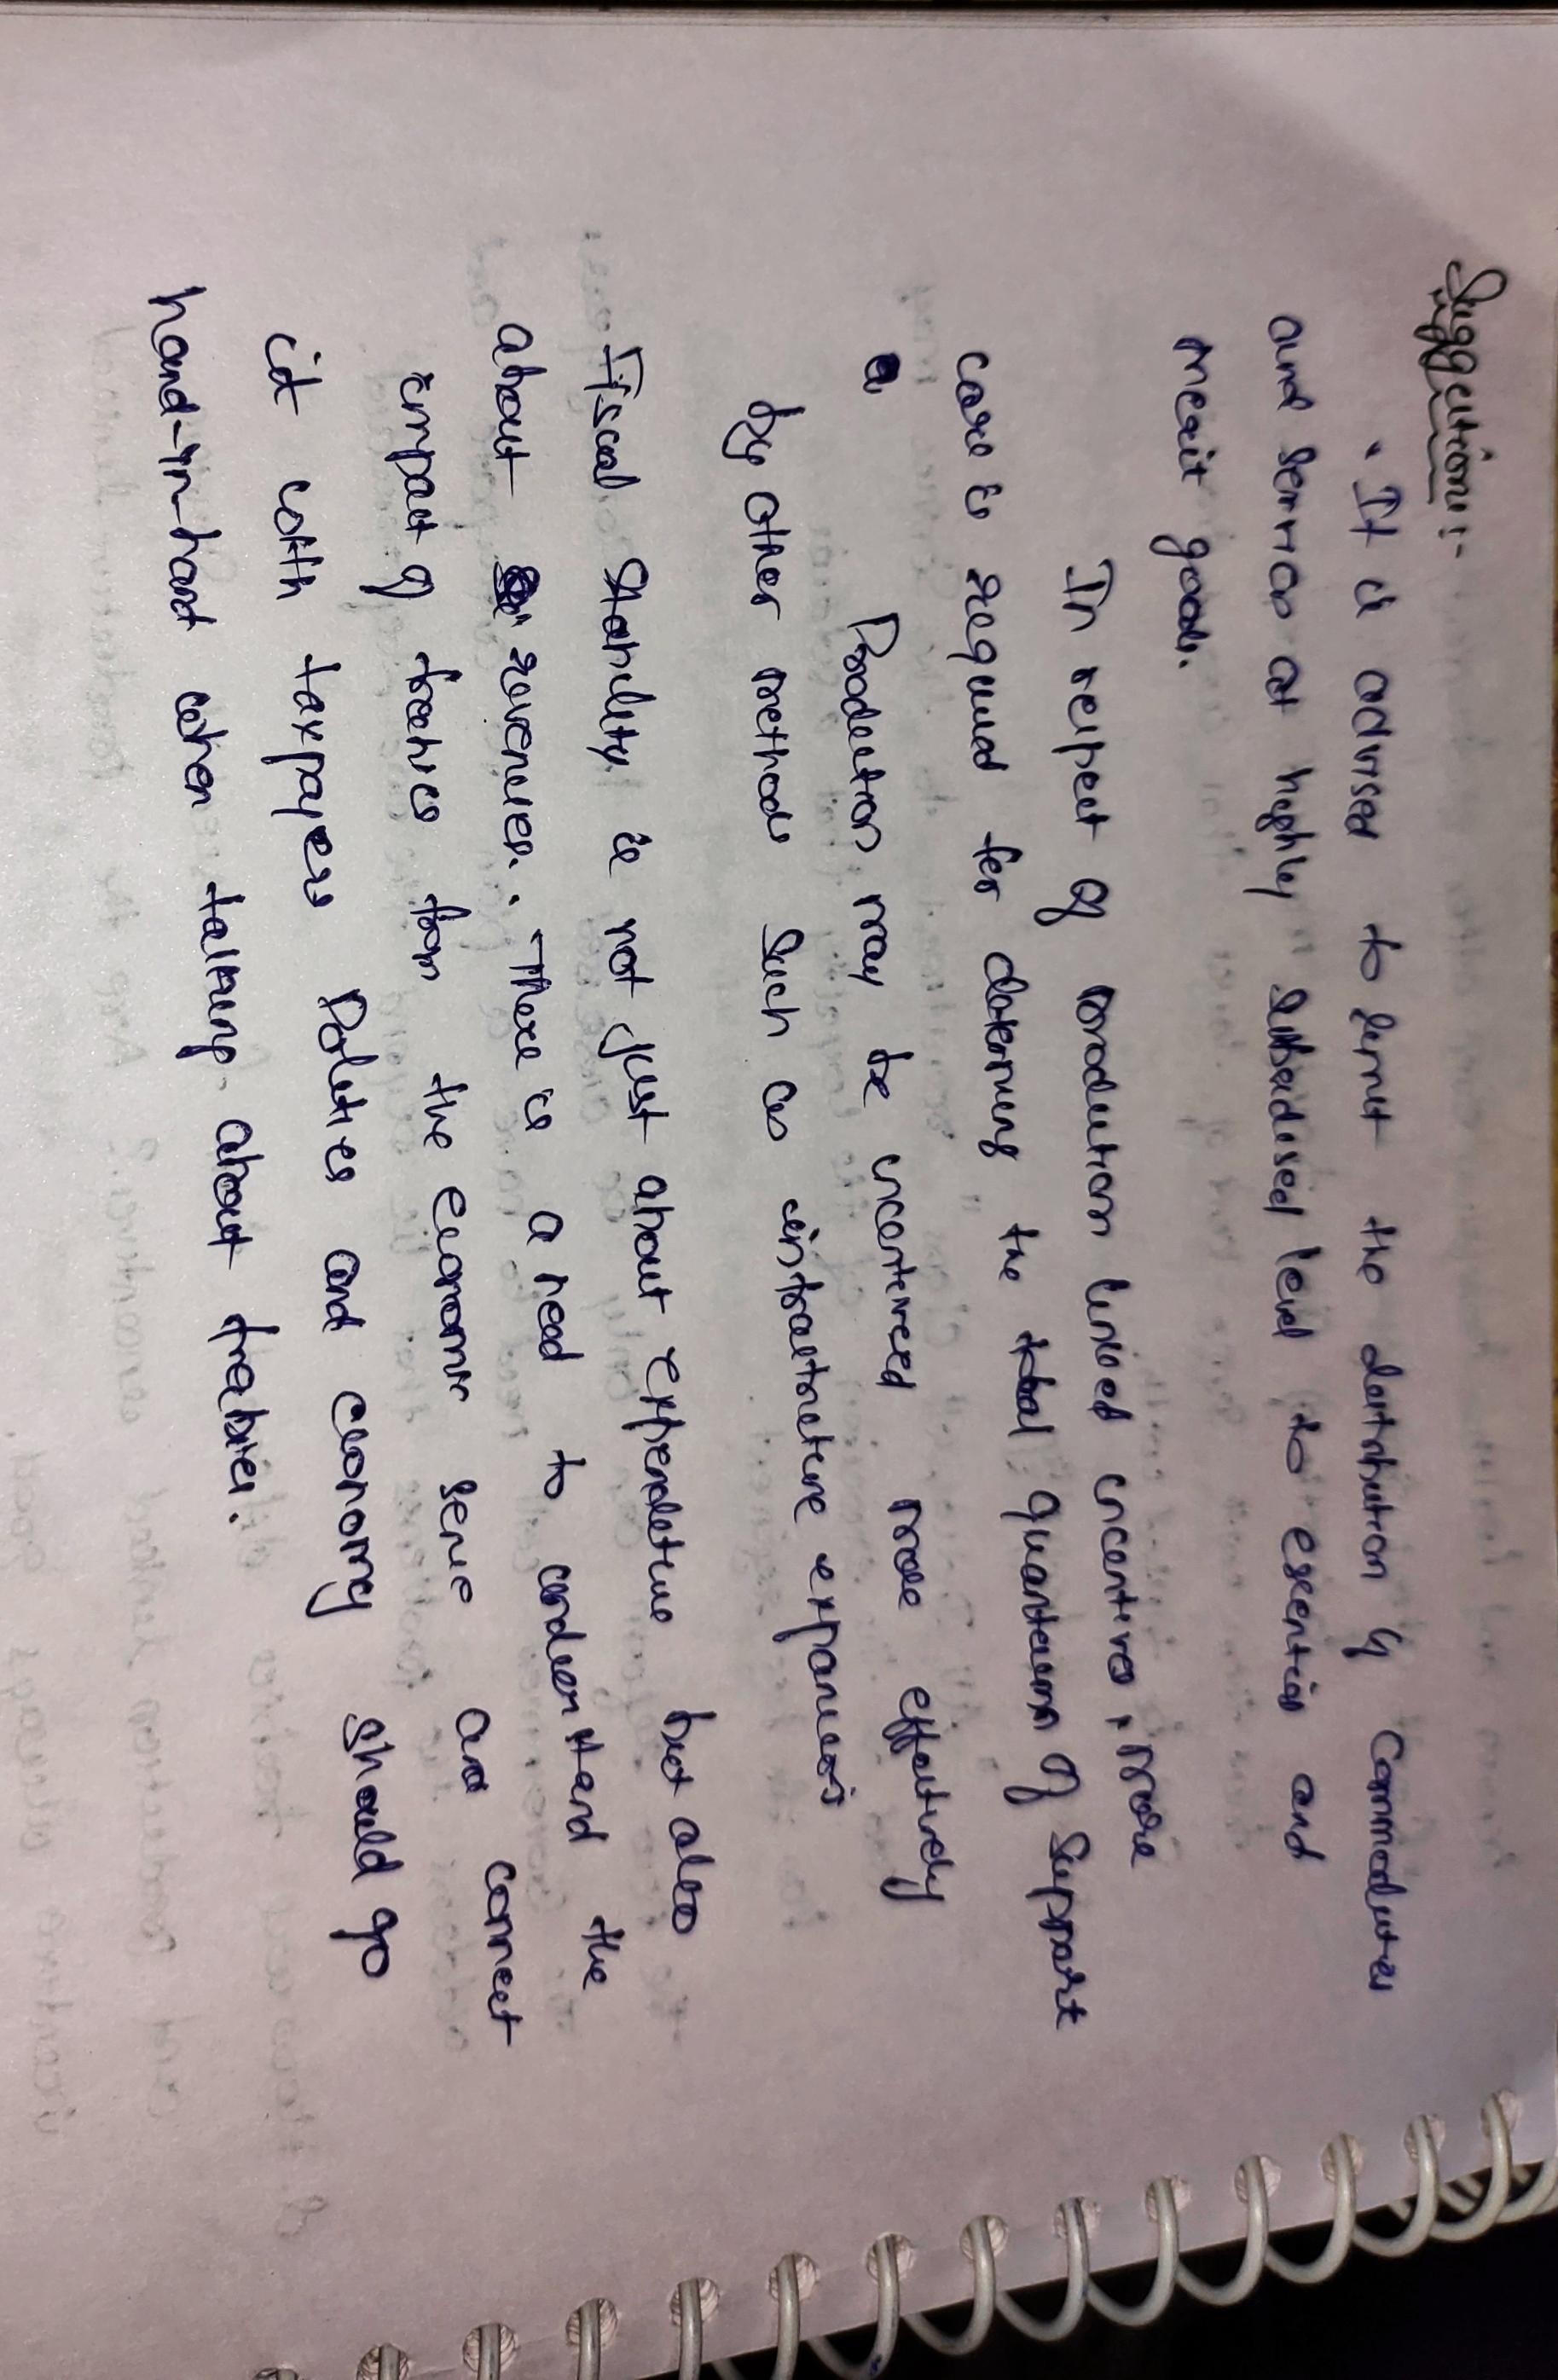 Suggestions:-
. It is advised to limit the distribution of commodities
and services at highly subsidised level to essential and
merit goods.
In respect of production linked incentives, more
care is required for determining the total quantum of support
Production may be incentivized more effectively
by other methods such as infrastructure expansion
Fiscal stability is not just about expenditure but also
about revenues. There is a need to understand the
impact of freebies from the economic sense and connect
it with taxpayers Politics and economy should go
hand-in-hand when talking about freebies.